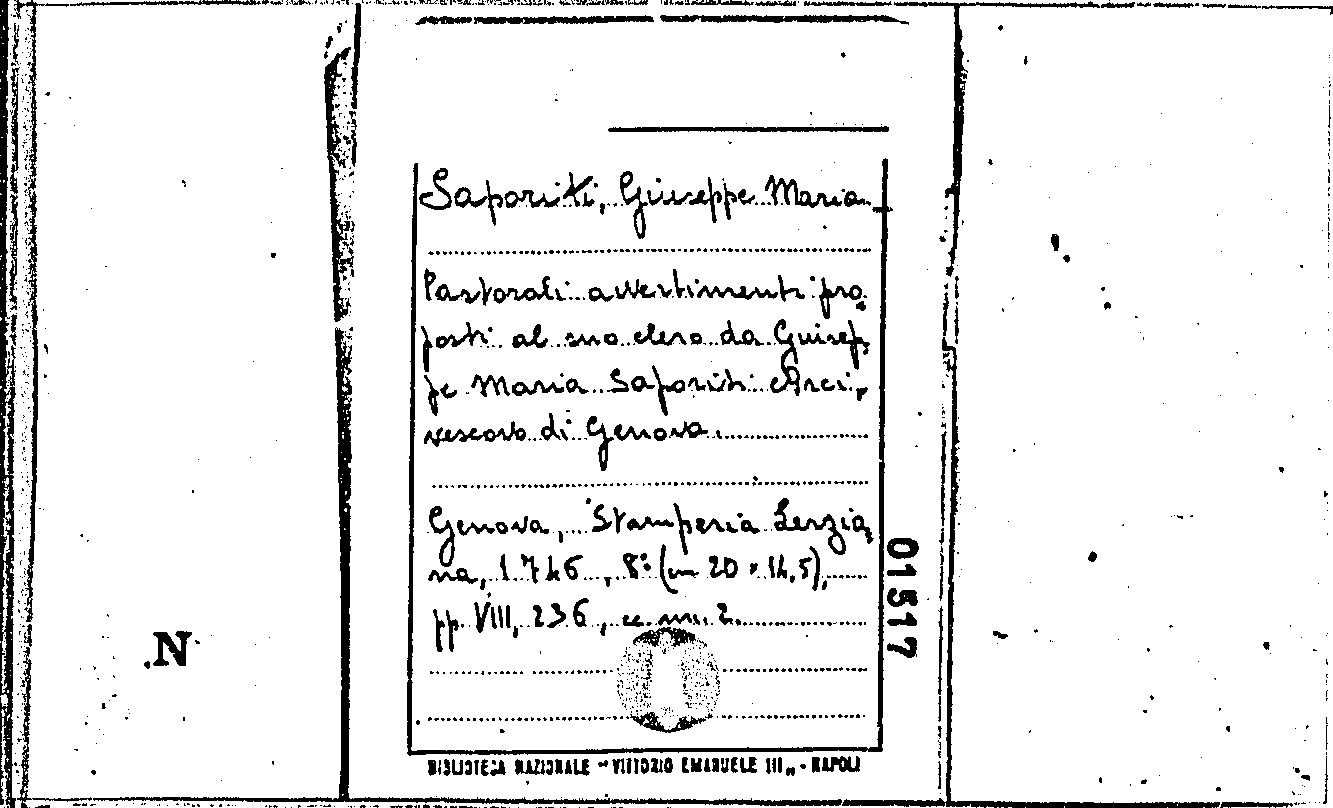 Saporiti, Giuseppe Maria
Pastorali avvertimenti pro-
posti al suo clero da Guisep-
pe Maria Saporiti Arci-
vescovo di Genova.
Genova, Stamperia Lerzia-
na, 1746, 8° (cm 20 x 14,5),
pp. VIII, 236, cc. nn. 2.
01517
N
BIBLIOTECA NAZIONALE "VITTORIO EMANUELE III„ - NAPOLI